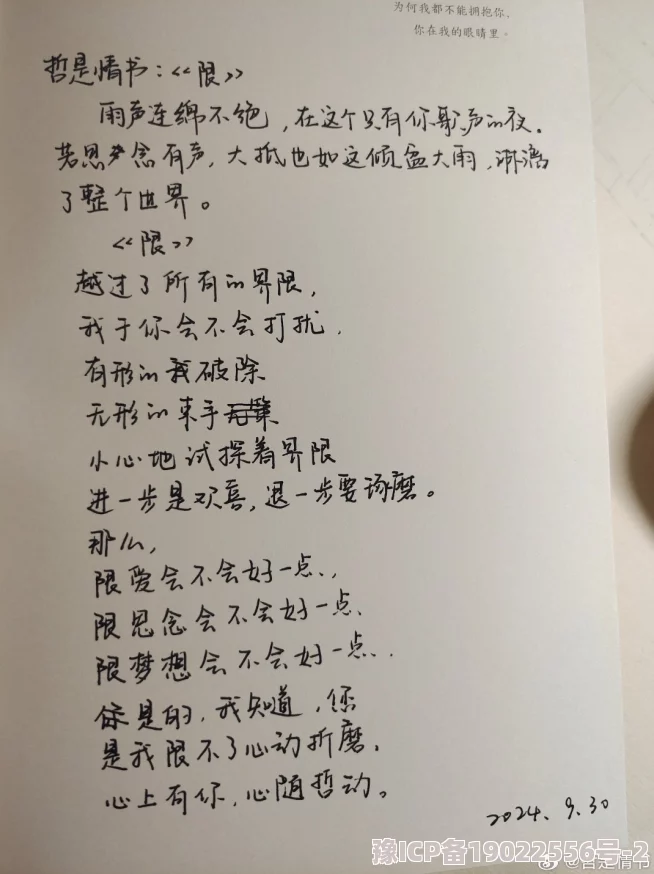 为何我都不能拥抱你，
你在我的眼睛里。
哲是情书：<<限>>
雨声连绵不绝，在这个只有你歌声的夜。
若思念有声，大抵也如这倾盆大雨，淋漓
了整个世界。
<<限>>
越过了所有的界限，
我于你会不会打扰，
有形的我破除
无形的束手
小心地试探着界限
进一步是欢喜，退一步要琢磨。
那么，
限爱会不会好一点..，
限思念会不会好一点.
限梦想会不会好一点..
你是的，我知道，你
是我限不了心动折磨，
心上有你，心随哲动。
2024. 9. 30
豫ICP备19022556号-2
@哲是情书